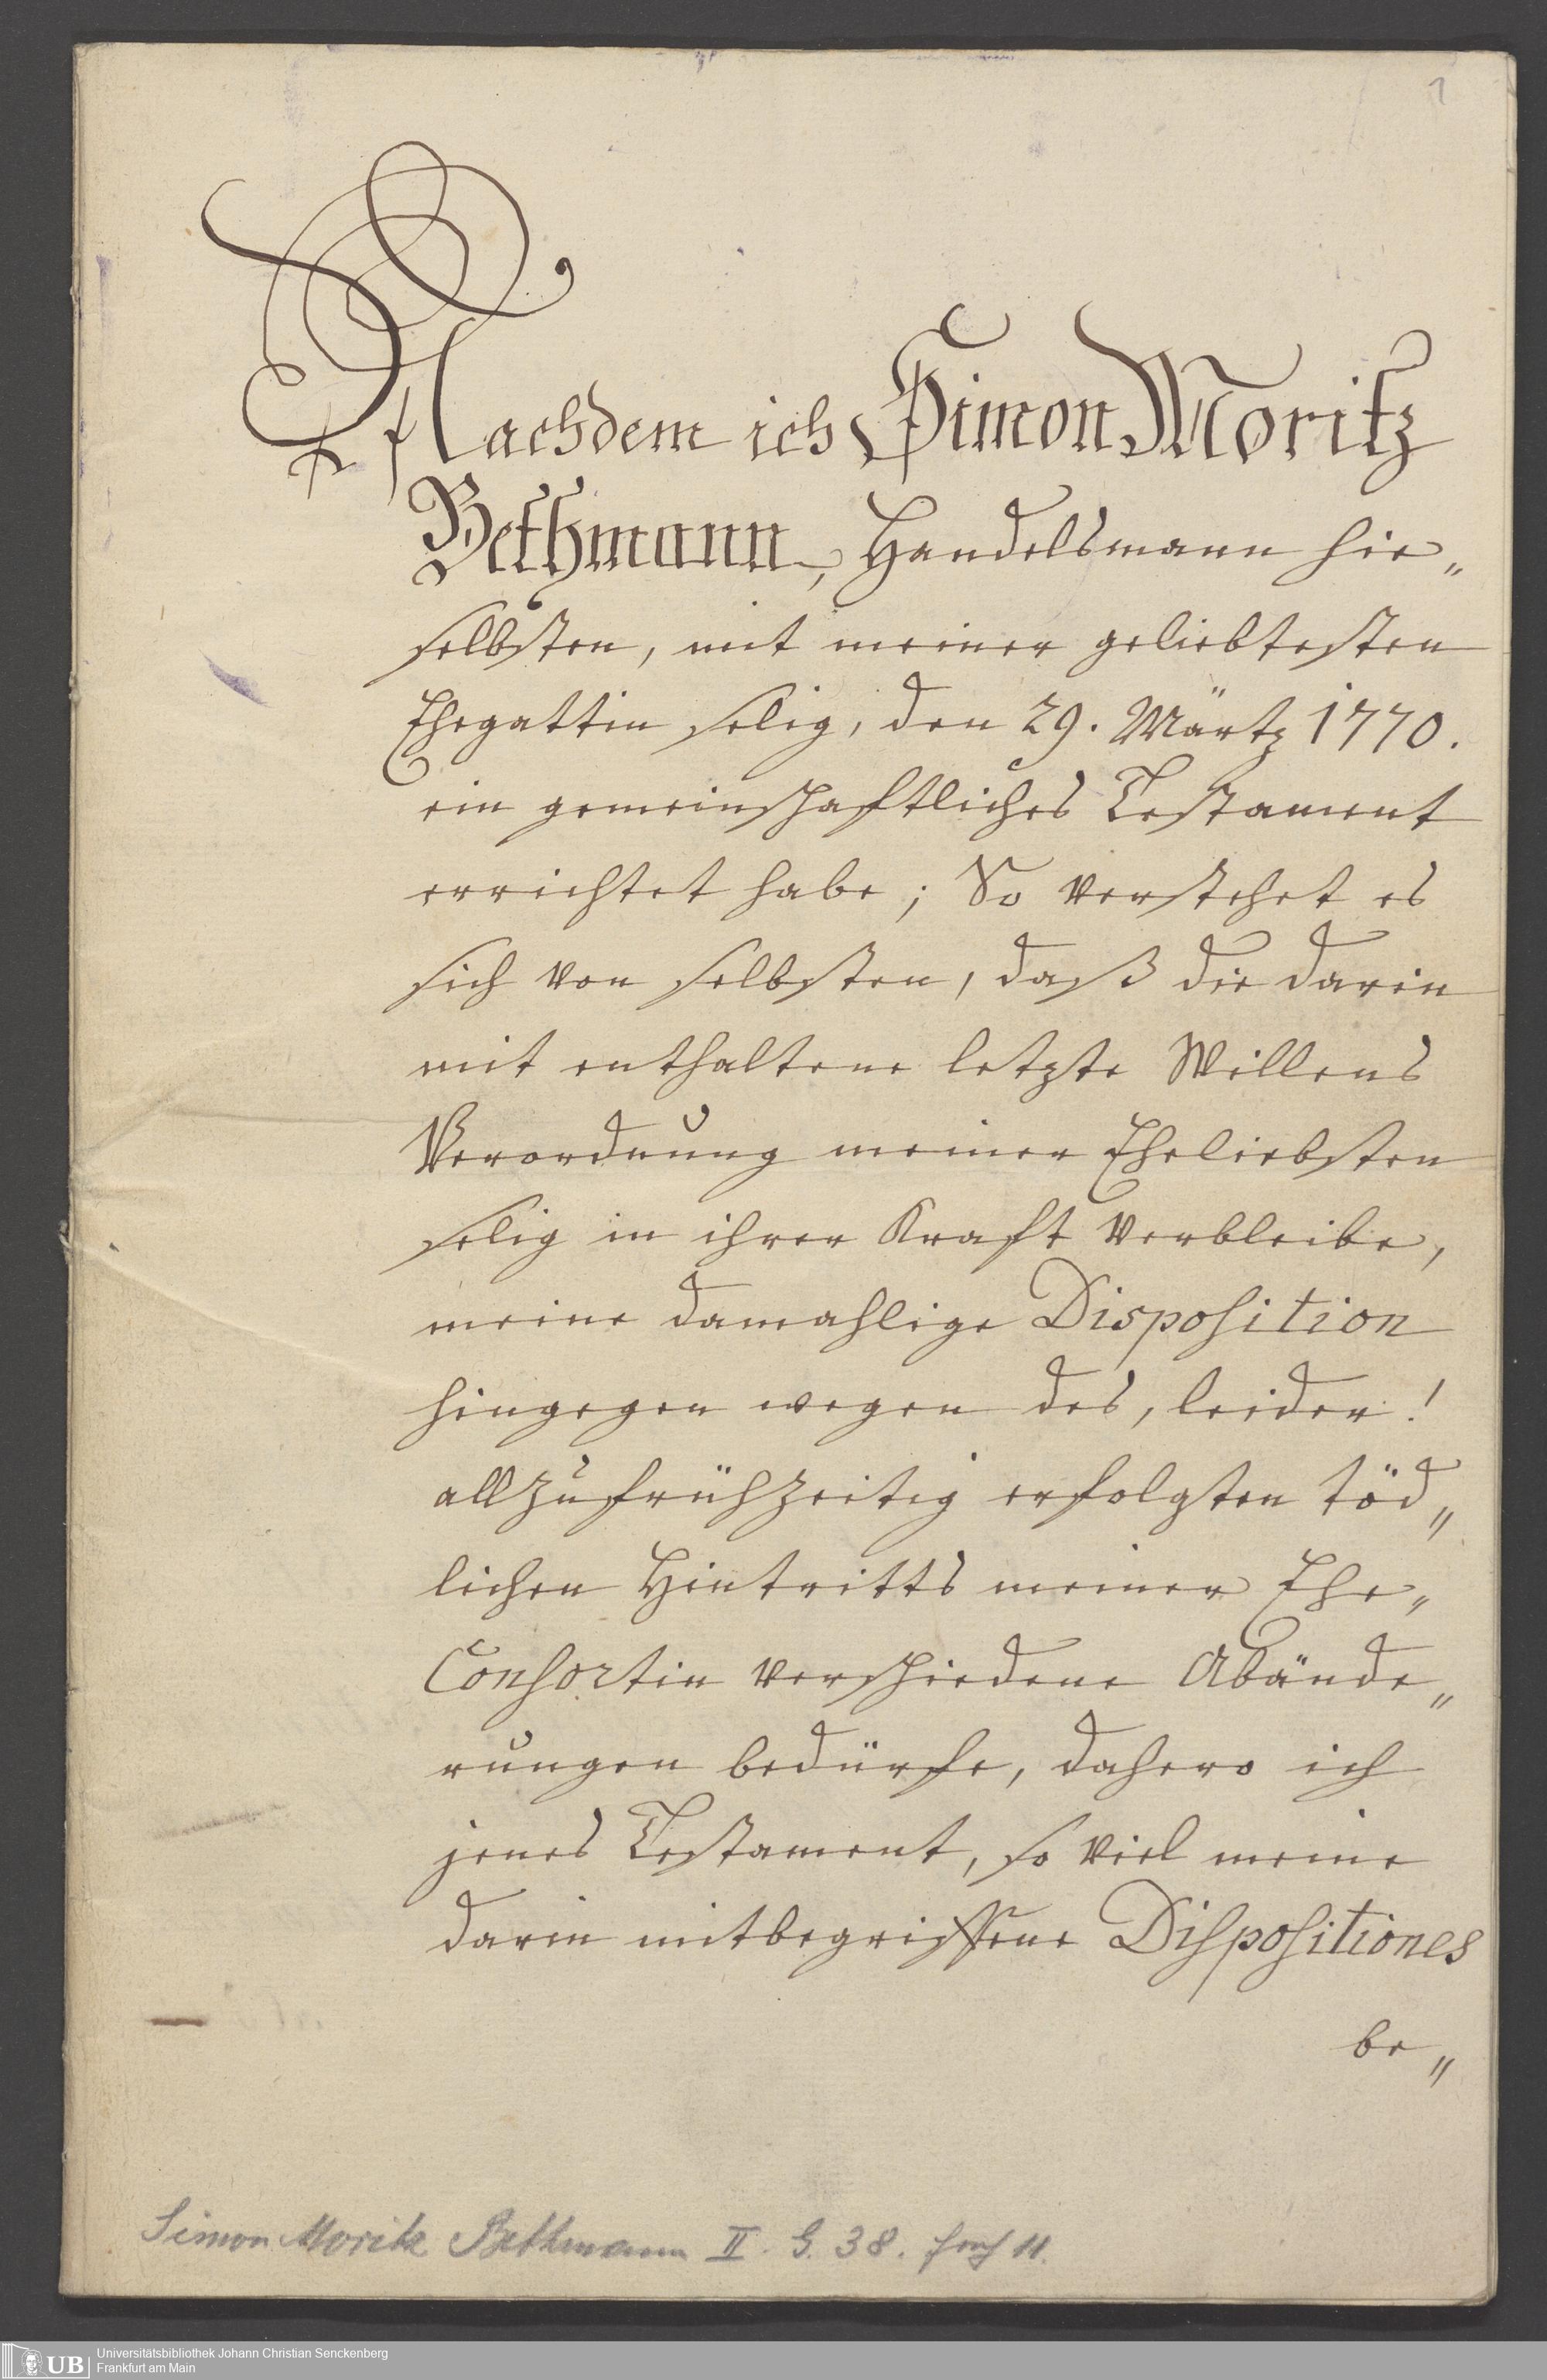 1
Nachdem ich Simon Moritz
Bethmann, Handelsmann hie„
selbsten, mit meiner geliebtesten
Ehegattin selig, den 29. Märtz 1770.
ein gemeinschaftliches Testament
errichtet habe; So verstehet es
sich von selbsten, daß die darin
mit enthaltene letzte Willens
Verordnung meiner Eheliebsten
selig in ihrer Kraft verbleibe,
meine damahlige Disposition
hingegen wegen des, leider!
allzufrühzeitig erfolgten töd„
lichen Hintritts meiner Ehe„
Consortin verschiedene Abände„
rungen bedürfe, dahero ich
jenes Testament, so viel meine
darin mitbegriffene Dispositiones
be„
Simon Moritz Bethmann II. G. 38. 11.
UB Universitätsbibliothek Johann Christian Senckenberg
Frankfurt am Main